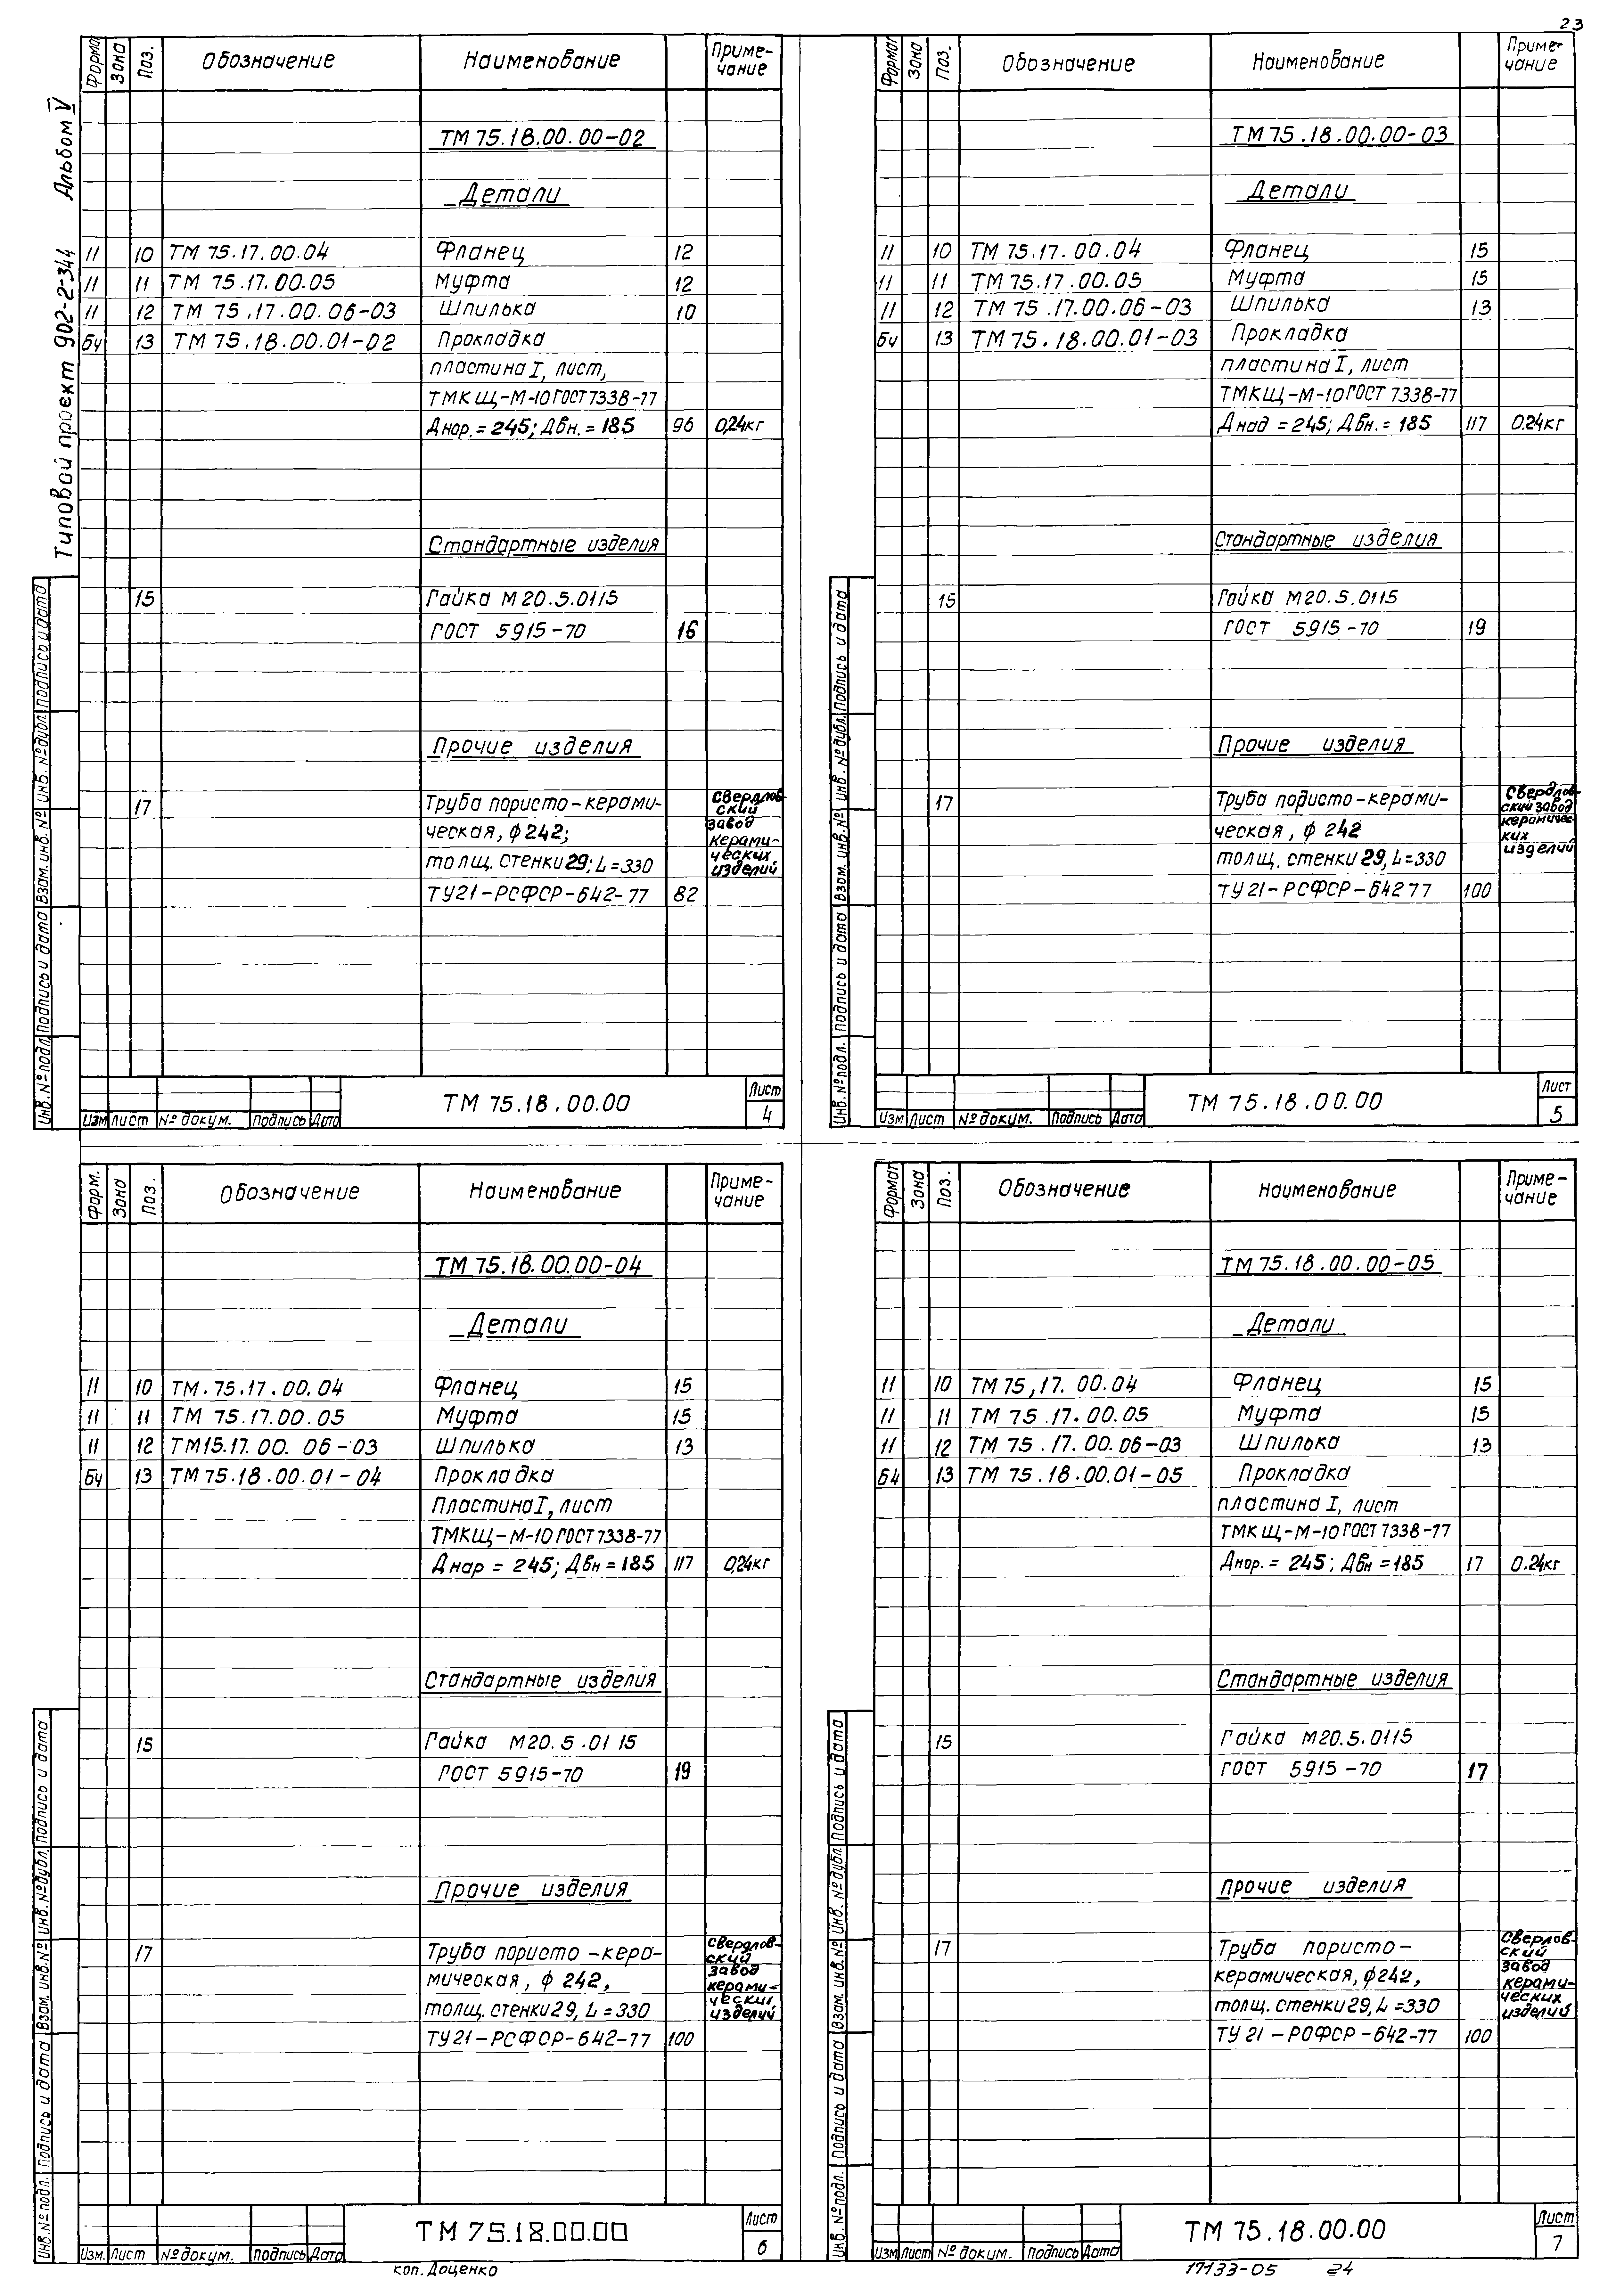 23
Типовой проект 902-2-344 Альбом V
Формат Зона Поз. Обозначение Наименование Приме-
чание
ТМ 75.18.00.00-02
Детали
11 10 ТМ 75.17.00.04 Фланец 12
11 11 ТМ 75.17.00.05 Муфта 12
11 12 ТМ 75.17.00.06-03 Шпилька 10
бч 13 ТМ 75.18.00.01-02 Прокладка
пластина I, лист,
ТМКЩ-М-10 ГОСТ 7338-77
Днар.=245; Двн.=185 96 0,24кг
Стандартные изделия
15 Гайка М20.5.0115
ГОСТ 5915-70 16
Прочие изделия
17 Труба пористо-керами-
ческая, ф 242;
толщ. стенки 29; L=330
ТУ21-РСФСР-642-77 82
Свердлов-
ский
завод
керами-
ческих
изделий
Инв.№подл. Подпись и дата Взам.инв.№ Инв.№дубл. Подпись и дата
Изм Лист №докум. Подпись Дата
ТМ 75.18.00.00
Лист
4
Формат Зона Поз. Обозначение Наименование Приме-
чание
ТМ 75.18.00.00-03
Детали
11 10 ТМ 75.17.00.04 Фланец 15
11 11 ТМ 75.17.00.05 Муфта 15
11 12 ТМ 75.17.00.06-03 Шпилька 13
бч 13 ТМ 75.18.00.01-03 Прокладка
пластина I, лист
ТМКЩ-М-10 ГОСТ 7338-77
Днад=245; Двн.=185 117 0.24кг
Стандартные изделия
15 Гайка М20.5.0115
ГОСТ 5915-70 19
Прочие изделия
17 Труба пористо-керами-
ческая, ф 242
толщ. стенки 29, L=330
ТУ21-РСФСР-642 77 100
Свердлов-
ский завод
керамичес-
ких
изделий
Инв.№подл. Подпись и дата Взам.инв.№ Инв.№дубл. Подпись и дата
Изм Лист №докум. Подпись Дата
ТМ 75.18.00.00
Лист
5
Форм. Зона Поз. Обозначение Наименование Приме-
чание
ТМ 75.18.00.00-04
Детали
11 10 ТМ.75.17.00.04 Фланец 15
11 11 ТМ 75.17.00.05 Муфта 15
11 12 ТМ15.17.00.06-03 Шпилька 13
бч 13 ТМ 75.18.00.01-04 Прокладка
Пластина I, лист
ТМКЩ-М-10 ГОСТ 7338-77
Днар=245; Двн=185 117 0,24кг
Стандартные изделия
15 Гайка М20.5.0115
ГОСТ 5915-70 19
Прочие изделия
17 Труба пористо-кера-
мическая, ф 242,
толщ. стенки 29, L=330
ТУ21-РСФСР-642-77 100
Свердлов-
ский
завод
керами-
ческих
изделий
Инв.№подл. Подпись и дата Взам.инв.№ Инв.№дубл. Подпись и дата
Изм. Лист №докум. Подпись Дата
ТМ 75.18.00.00
Лист
6
Формат Зона Поз. Обозначение Наименование Приме-
чание
ТМ 75.18.00.00-05
Детали
11 10 ТМ 75,17.00.04 Фланец 15
11 11 ТМ 75.17.00.05 Муфта 15
11 12 ТМ 75.17.00.06-03 Шпилька 13
б4 13 ТМ 75.18.00.01-05 Прокладка
пластина I, лист
ТМКЩ-М-10 ГОСТ 7338-77
Днар.=245; Двн=185 17 0.24кг
Стандартные изделия
15 Гайка М20.5.0115
ГОСТ 5915-70 17
Прочие изделия
17 Труба пористо-
керамическая, ф242,
толщ. стенки 29, L=330
ТУ 21-РОФСР-642-77 100
Сверлов-
ский
завод
керами-
ческих
изделий
Инв.№подл. Подпись и дата Взам.инв.№ Инв.№дубл. Подпись и дата
Изм Лист №докум. Подпись Дата
ТМ 75.18.00.00
Лист
7
коп. Доценко
17133-05 24